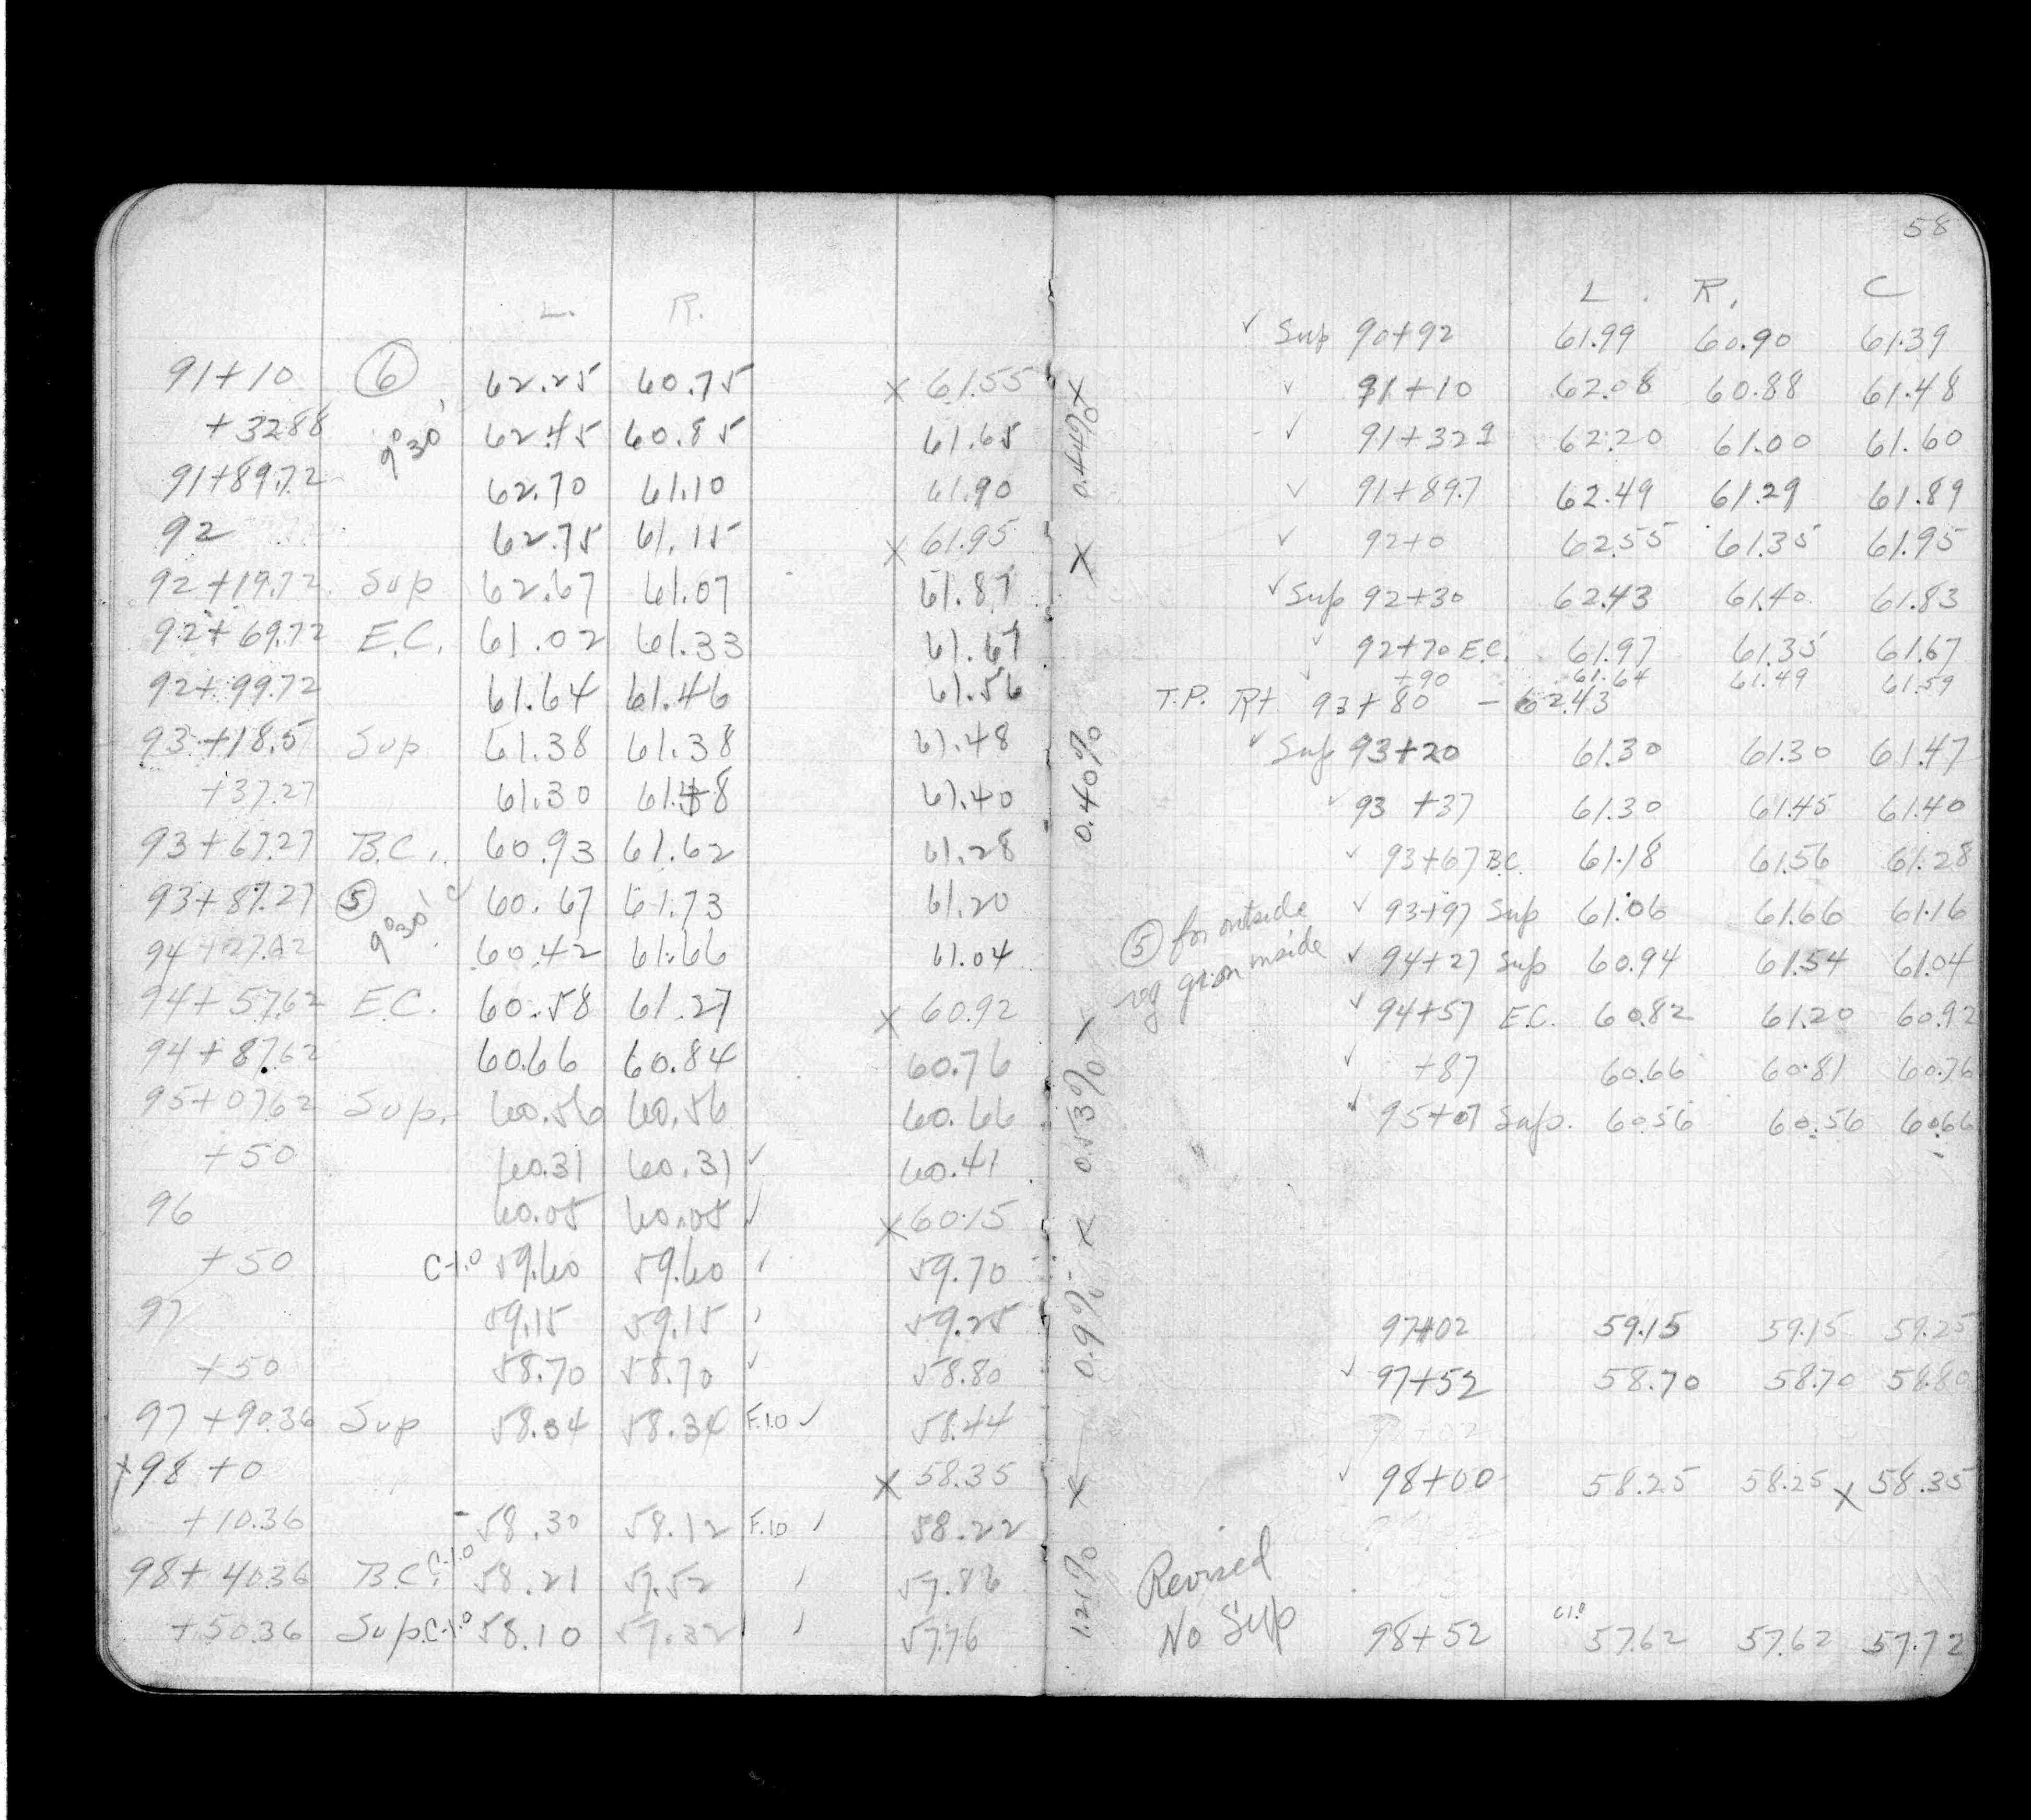 L. R.
91+10 ⑥ 62.25 60.75 × 61.55
+32.88 9°30' 62.45 60.85 61.65
91+89.72 62.70 61.10 61.90
92 62.75 61.15 × 61.95
92+19.72 Sup 62.67 61.07 61.87
92+69.72 E.C. 61.02 61.33 61.67
92+99.72 61.64 61.46 61.56
93+18.5 Sup 61.38 61.38 61.48
+37.27 61.30 61.48 61.40
93+67.27 B.C. 60.93 61.62 61.28
93+87.27 ⑤ 9°30' 60.67 61.73 61.20
94+27.62 60.42 61.66 61.04
94+57.62 E.C. 60.58 61.27 × 60.92
94+87.62 60.66 60.84 60.76
95+07.62 Sup. 60.56 60.56 60.66
+50 60.31 60.31 ✓ 60.41
96 60.05 60.05 ✓ × 60.15
+50 C-1.0 59.60 59.60 ✓ 59.70
97 59.15 59.15 ✓ 59.25
+50 58.70 58.70 ✓ 58.80
97+90.36 Sup 58.34 58.34 F.1.0 ✓ 58.44
×98+0 × 58.35
+10.36 58.30 58.12 F.1.0 ✓ 58.22
98+40.36 B.C. C-1.0 58.21 57.52 ✓ 57.86
+50.36 Sup. C-1.0 58.10 57.32 ✓ 57.76
× 0.44% ×
0.40%
0.53% ×
0.9% ×
1.21% ×
58
L. R. C
✓ Sup 90+92 61.99 60.90 61.39
✓ 91+10 62.08 60.88 61.48
✓ 91+329 62.20 61.00 61.60
✓ 91+89.7 62.49 61.29 61.89
✓ 92+0 62.55 61.35 61.95
✓ Sup 92+30 62.43 61.40 61.83
✓ 92+70 E.C. 61.97 61.35 61.67
✓ +90 61.64 61.49 61.59
T.P. Rt 93+80 – 62.43
✓ Sup 93+20 61.30 61.30 61.47
✓ 93 +37 61.30 61.45 61.40
✓ 93+67 B.C. 61.18 61.56 61.28
✓ 93+97 Sup 61.06 61.66 61.16
⑤ for outside
reg gr on inside
✓ 94+27 Sup 60.94 61.54 61.04
✓ 94+57 E.C. 60.82 61.20 60.92
✓ +87 60.66 60.81 60.76
✓ 95+07 Sup. 60.56 60.56 60.66
97+02 59.15 59.15 59.25
✓ 97+52 58.70 58.70 58.80
✓ 98+00 58.25 58.25 × 58.35
Revised
No Sup
98+52 C1.0 57.62 57.62 57.72